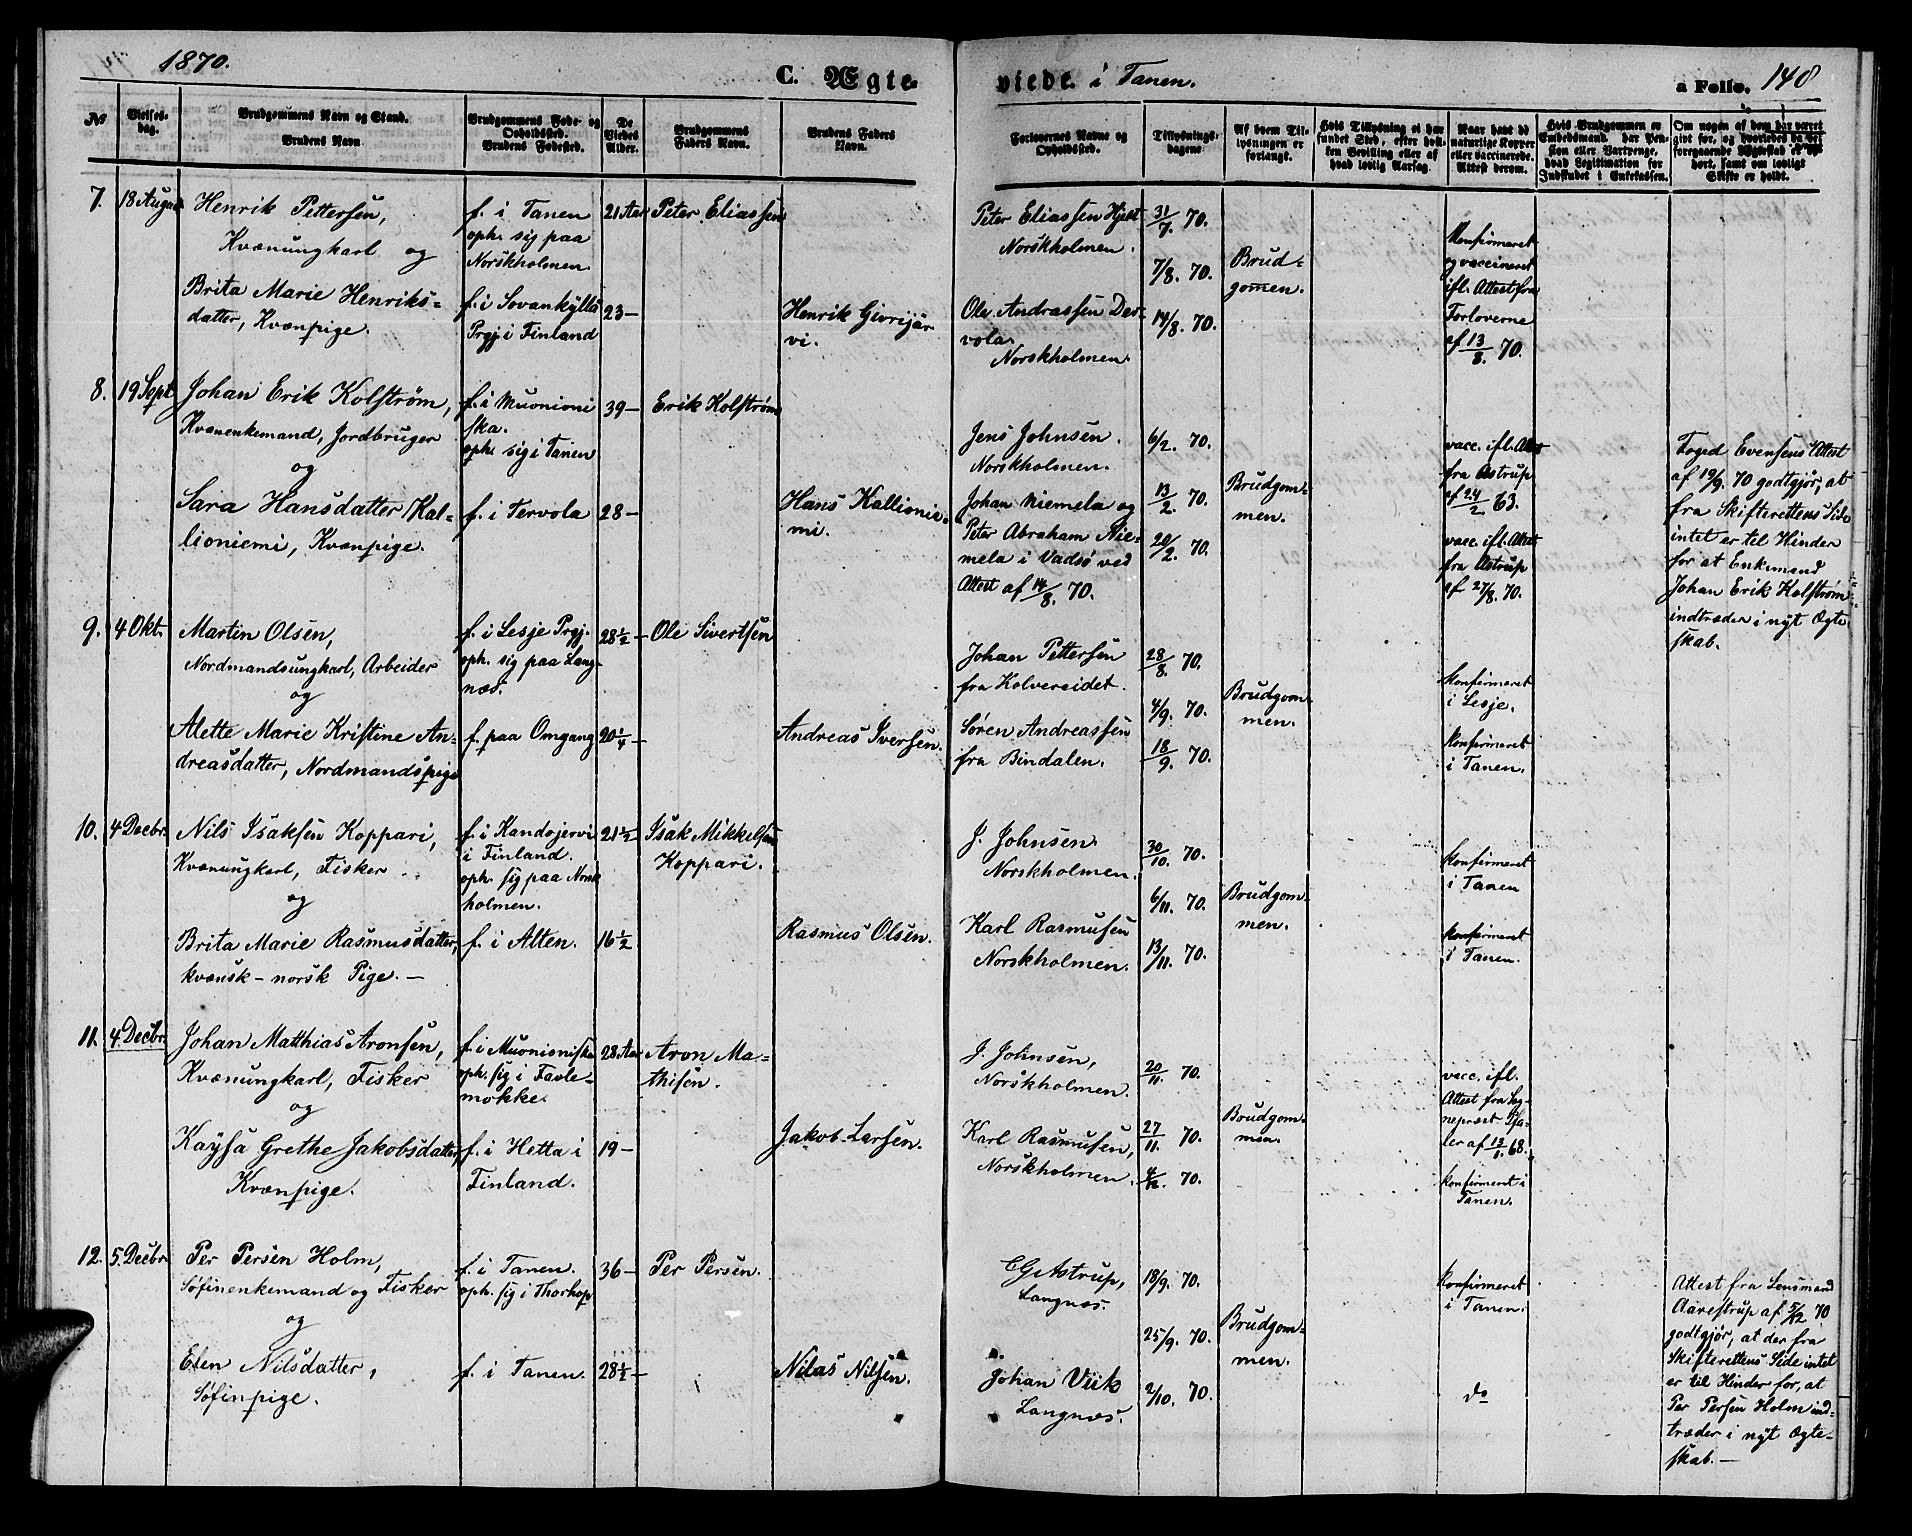 1870.
C. Ægte
№
Vielses-
dag.
Brudgommens Navn og Stand.
Brudens Navn
Brudgommens Føde- og
Opholdssted.
Brudens Fødested.
De
Viedes
Alder.
Brudgommens
Faders Navn.
Brudens Faders
Navn.
7. 18 August Henrik Pettersen, f. i Tanen 21 Aar Peter Eliassen
Kvænungkarl og oph. sig paa
Norskholmen
Brita Marie Henriks- f. i Sovankyllä 23 – Henrik Givrijär
datter, Kvænpige. Prgj. i Finland vi.
8. 19 Sept Johan Erik Kolstrøm, f. i Muonioni 39 – Erik Kolstrøm
Kvænenkemand, Jordbruger ska.
og oph. sig i Tanen
Sara Hansdatter Kal- f. i Tervola 28 – Hans Kallionie-
lioniemi, Kvænpige. mi.
9. 4 Okt. Martin Olsen, f. i Lesje Prgj. 28 1/2 – Ole Sivertsen
Nordmandsungkarl, Arbeider oph. sig paa Lang-
og næs.
Alette Marie Kristine An- f. paa Omgang 20 1/4 – Andreas Iversen.
dreasdatter, Nordmandspige
10. 4 Decbr. Nils Isaksen Koppari, f. i Kandojervi 21 1/2 – Isak Mikkelsen
Kvænungkarl, Fisker i Finland. Koppari.
og oph. sig paa Norsk
holmen.
Brita Marie Rasmusdatter, f. i Alten. 16 1/2 Rasmus Olsen.
kvænsk – norsk Pige. –
11. 4 Decbr. Johan Matthias Aronsen, f. i Muonioniska 28 Aar Aron Ma-
Kvænungkarl, Fisker oph. sig i Favle- thisen.
og mokke.
Kaysa Grethe Jakobsdatter, f. i Hetta i 19 – Jakob Larsen.
Kvænpige. Finland.
12. 5 Decbr. Per Persen Holm, f. i Tanen. 36 – Per Persen.
Søfinenkemand og Fisker oph. sig i Thorhop
og
Elen Nilsdatter, f. i Tanen. 28 1/2 – Nilas Nilsen.
Søfinpige.
viede. i Tanen. a Folio. 148
Forlovernes Navne og
Opholdssted.
Tillysnings-
dagene
Af hvem Til-
lysningen er
forlangt.
Hvis Tillysning ei har
fundet Sted, efter hvil-
ken Bevilling eller af
hvad lovlig Aarsag.
Naar havt de
naturlige Kopper
eller vaccinerede.
Attest derom.
Hvis Brudgommen er
Embedsmand, har Pen-
sion eller Vartpenge,
hvad Legitimation for
Indskudet i Enkekassen.
Om nogen af dem har været
gift før, og hvorledes da det
foregaaende Ægteskab er op-
hørt, samt om lovligt
Skifte er holdt.
Peter Eliassen Hjelt 31/7. 70.
Norskholmen. Konfirmeret
7/8. 70. Brud- og vaccineret
gomen. ifl. Attest fra
Ole Andrassen Der- 14/8. 70. Forloverne
vola. af 13/8. 70.
Norskholmen.
Jens Johnsen. 6/2. 70. vacc. ifl. Attest Foged Evensens Attest
Norskholmen. fra Astrup af 19/9. 70 godtgjør, at
Johan Niemela og 13/2 70. Brudgom- af 24/2 63. fra Skifterettens Side
Peter Abraham Nie- men. vacc. ifl. Attest intet er til Hinder
mela i Vadsø ved 20/2. 70. fra Astrup for at Enkemand
Attest af 14/8. 70. af 27/8. 70. Johan Erik Kolstrøm
indtræder i nyt Ægte
skab.
Johan Pettersen 28/8. 70.
fra Kolvereidet. Konfirmeret
4/9. 70. Brudgom- i Lesje.
Søren Andreassen men. Konfirmeret
fra Bindalen. 18/9. 70. i Tanen.
J. Johnsen 30/10. 70. Konfirmeret
Norskholmen. i Tanen
6/11. 70. Brudgom-
Karl Rasmusen men. Konfirmeret
Norskholmen. 13/11. 70. i Tanen.
J. Johnsen, 20/11. 70. vacc. ifl.
Norskholmen. Attest fra Sog-
Karl Rasmusen, 27/11. 70. Brudgom- nepræst
Norskholmen. men. af 12/1. 68.
4/12. 70. konfirmeret i
Tanen.
C G Astrup, 18/9. 70. Konfirmeret Attest fra Lensmand
Langnæs. i Tanen. Aarestrup af 5/12 70
25/9. 70. Brudgom- godtgjør, at der fra
men. Skifterettens Side intet
Johan Viik 2/10. 70. do er til Hinder for, at
Langnæs. Per Persen Holm ind-
træder i nyt Ægte-
skab. –